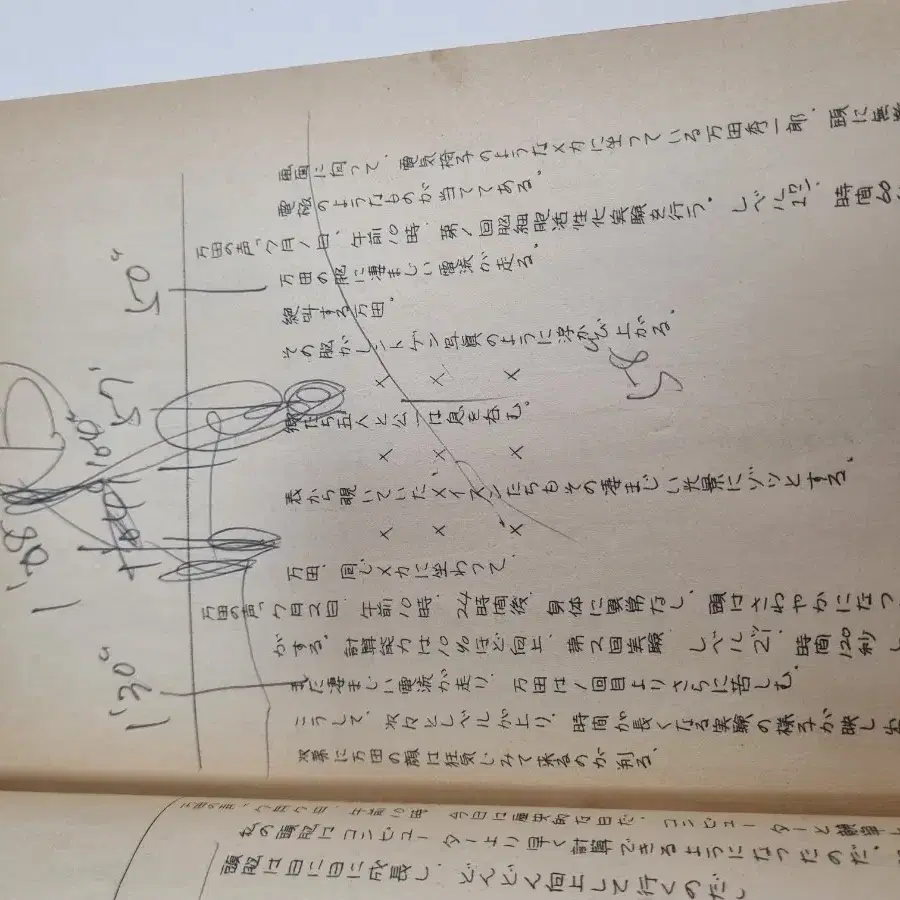 画面に向って、電気椅子のようなメカに坐っている万田秀一郎、頭に無数
電極のようなものが当ててある。
万田の声「7月1日、午前10時、第1回脳細胞活性化実験を行う。レベル12、時間60
万田の脳に凄まじい電流が走る。
絶叫する万田。
その脳がレントゲン写真のように浮かび上がる。
× × ×
たち五人と公一は息を呑む。
× × ×
表から覗いていたメイスンたちもその凄まじい光景にゾッとする。
× × ×
万田、同じメカに坐わって、
万田の声「7月2日、午前10時、24時間後、身体に異常なし、頭はさわやかになっ
がする。計算能力は10%ほど向上、第2回実験、レベル21、時間120秒
また凄まじい電流が走り、万田は1回目よりさらに苦しむ。
こうして、次々とレベルが上り、時間が長くなる実験の様子が映し
次第に万田の顔は狂気じみて来るのが判る、
万田の声「7月7日、午前10時、今日は歴史的な日だ、コンピューターと競争し
私の頭脳はコンピューターより早く計算できるようになったのだ、
頭脳は日に日に成長し、どんどん向上して行くのだ」
50"
58
1'30"